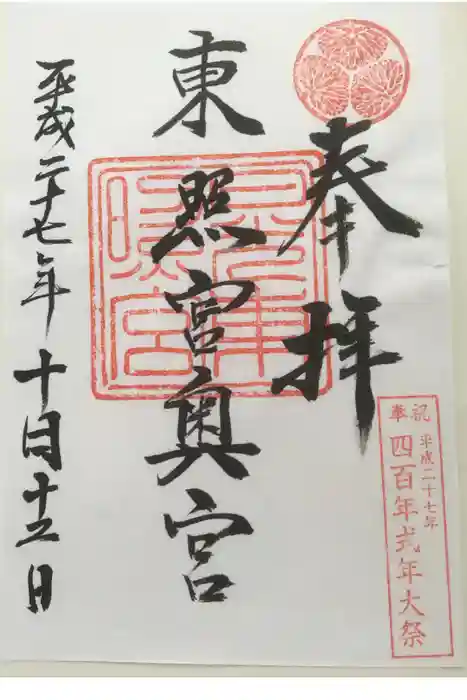 奉拝
東照宮奥宮
平成二十七年十月十二日
奉祝
平成二十七年
四百年式年大祭